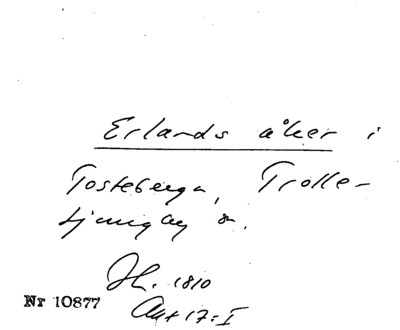 Erlands åker i
Tosteberga, Trolle-
Ljungby sn.
Jh. 1810
Akt 17:I
Nr 10877